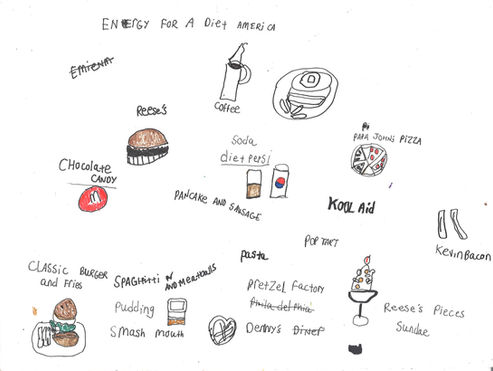 ENERGY FOR A Diet AMERICA
coffee
Reese's
soda
diet pepsi
PAPA JOHNS PIZZA
CHOColate
CANDY
m
PANCAKE AND SAUSAGE
KOOL Aid
POP TART
KevinBacon
pasta
CLASSIC BURGER
and FRies
SPAGHitti N
AND MEATbAlls
Pudding
Smash mouth
PretZel Factory
Phila del phia
Denny's Diner
Reese's Pieces
Sundae